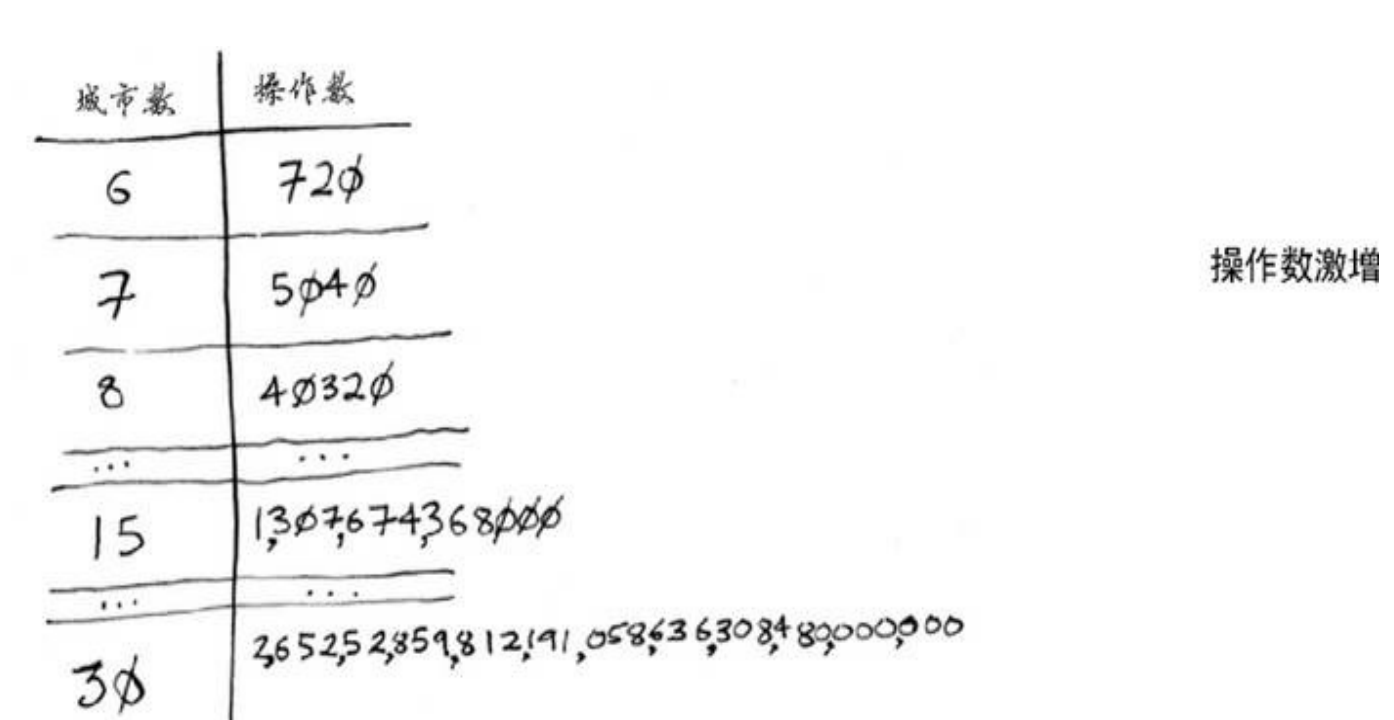 城市数 操作数
6 720
7 5040
8 40320
... ...
15 1,307,674,368000
... ...
30 2,652,52,859,812,191,058,636,308,480,000,000
操作数激增